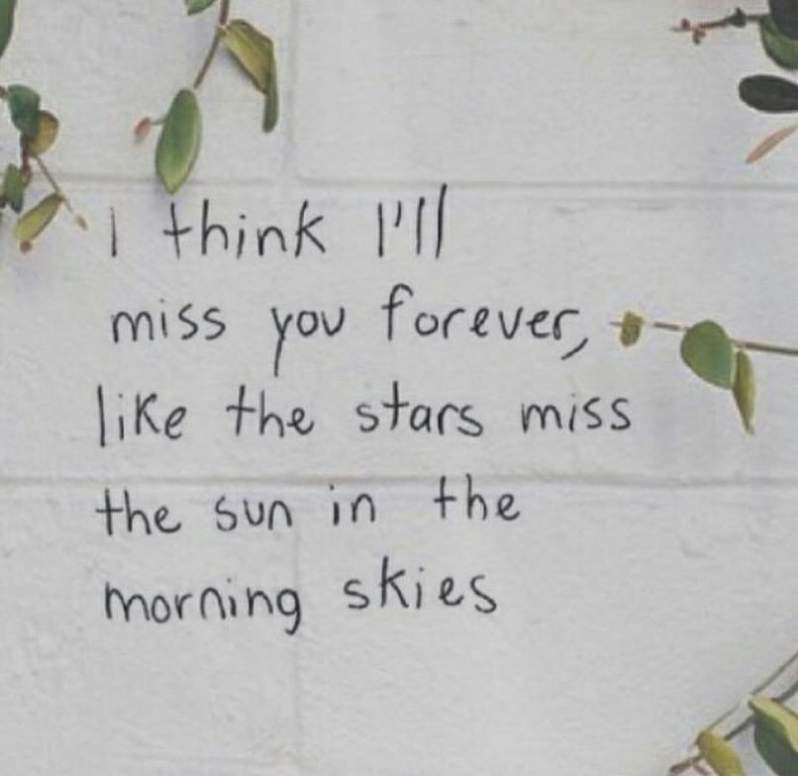 I think I'll
miss you forever,
like the stars miss
the sun in the
morning skies